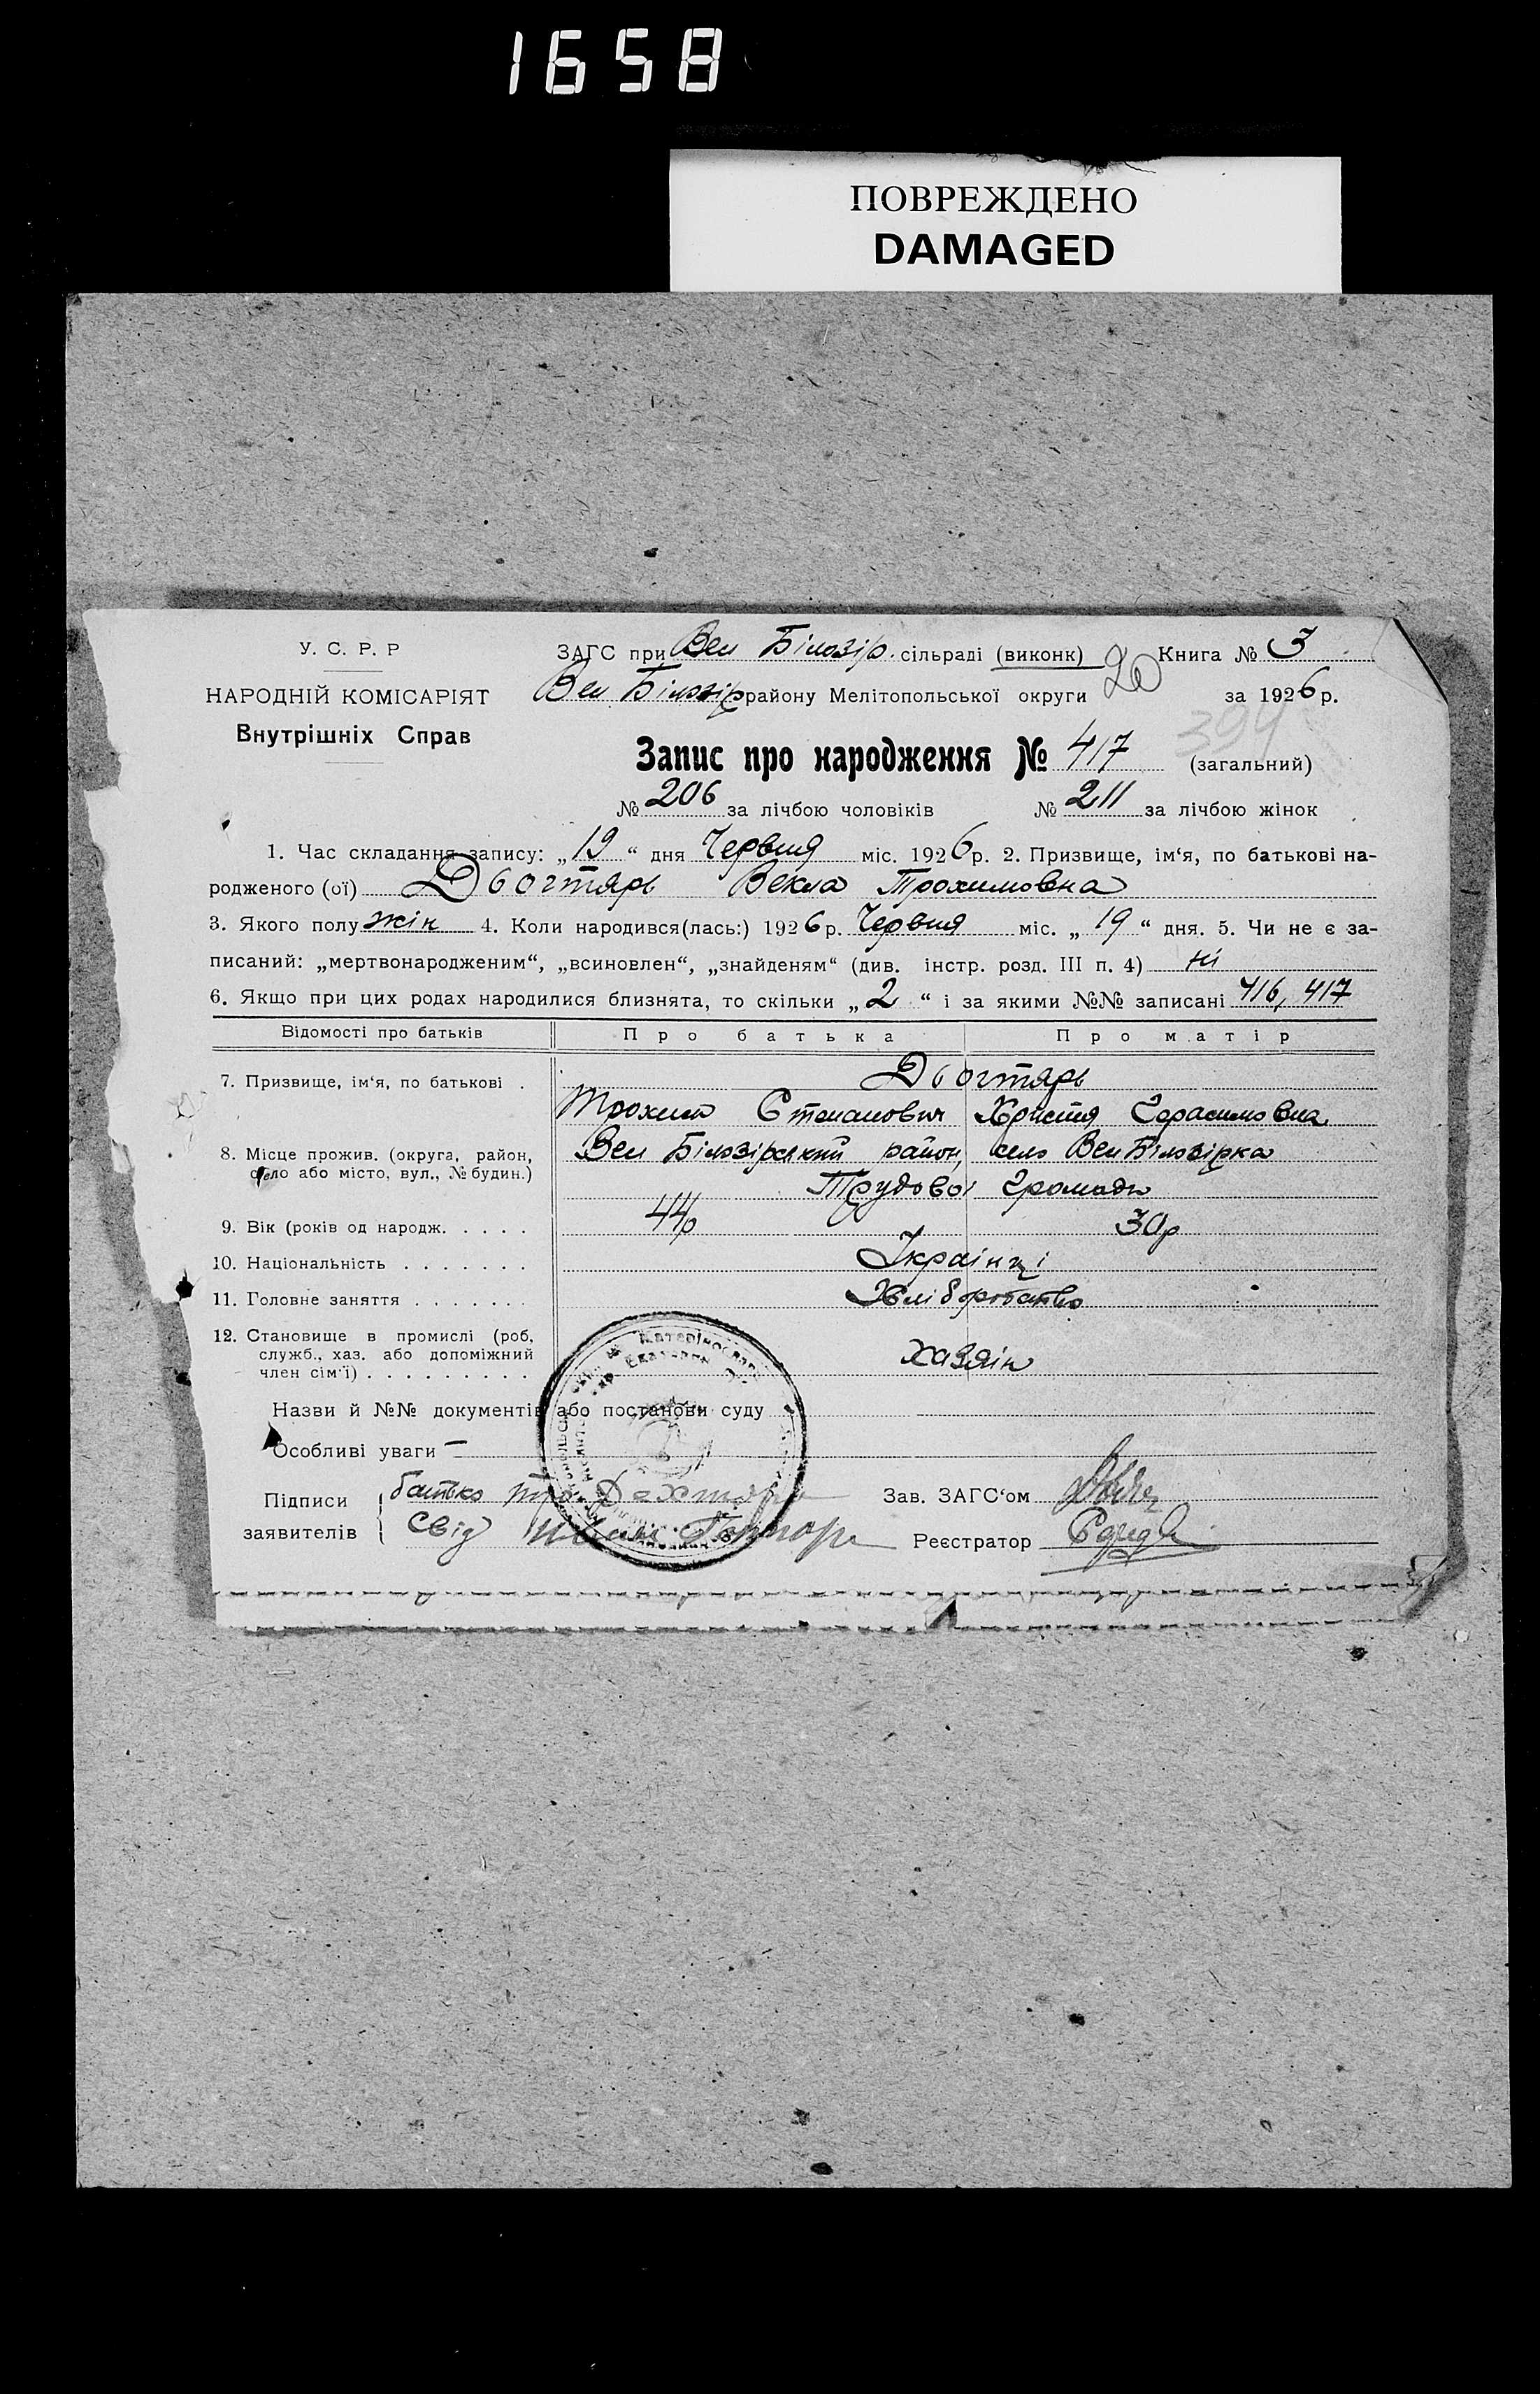 1658
ПОВРЕЖДЕНО
DAMAGED
У. С. Р. Р
НАРОДНІЙ КОМІСАРІЯТ
Внутрішніх Справ
ЗАГС при Вел Білозір. сільраді (виконк) 20 Книга № 3
Вел Білозір району Мелітопольської округи за 1926 р.
394
Запис про народження № 417 (загальний)
№ 206 за лічбою чоловіків № 211 за лічбою жінок
1. Час складання запису: „19“ дня Червня міс. 1926 р. 2. Призвище, ім‘я, по батькові на-
родженого (ої) Дьогтярь Векла Трохимовна
3. Якого полу жін 4. Коли народився(лась:) 1926 р. Червня міс. „19“ дня. 5. Чи не є за-
писаний: „мертвонародженим“, „всиновлен“, „знайденям“ (див. інстр. розд. III п. 4) ні
6. Якщо при цих родах народилися близнята, то скільки „2“ і за якими №№ записані 416, 417
Відомості про батьків Про батька Про матір
7. Призвище, ім‘я, по батькові . Дьогтярь
Трохим Степанович Христя Герасимовна
8. Місце прожив. (округа, район, Вел Білозірський район, село Вел Білозірка
село або місто, вул., № будин.)
Трудової громади
9. Вік (років од народж. . . . . 44р 30р
10. Національність . . . . . . . Українці
11. Головне заняття . . . . . . . Хліборобство
12. Становище в промислі (роб,
служб., хаз. або допоміжний Хазяін
член сім‘ї) . . . . . . . . .
Назви й №№ документів або постанови суду
Особливі уваги –
Підписи батько Зав. ЗАГС‘ом
заявителів свід Реєстратор